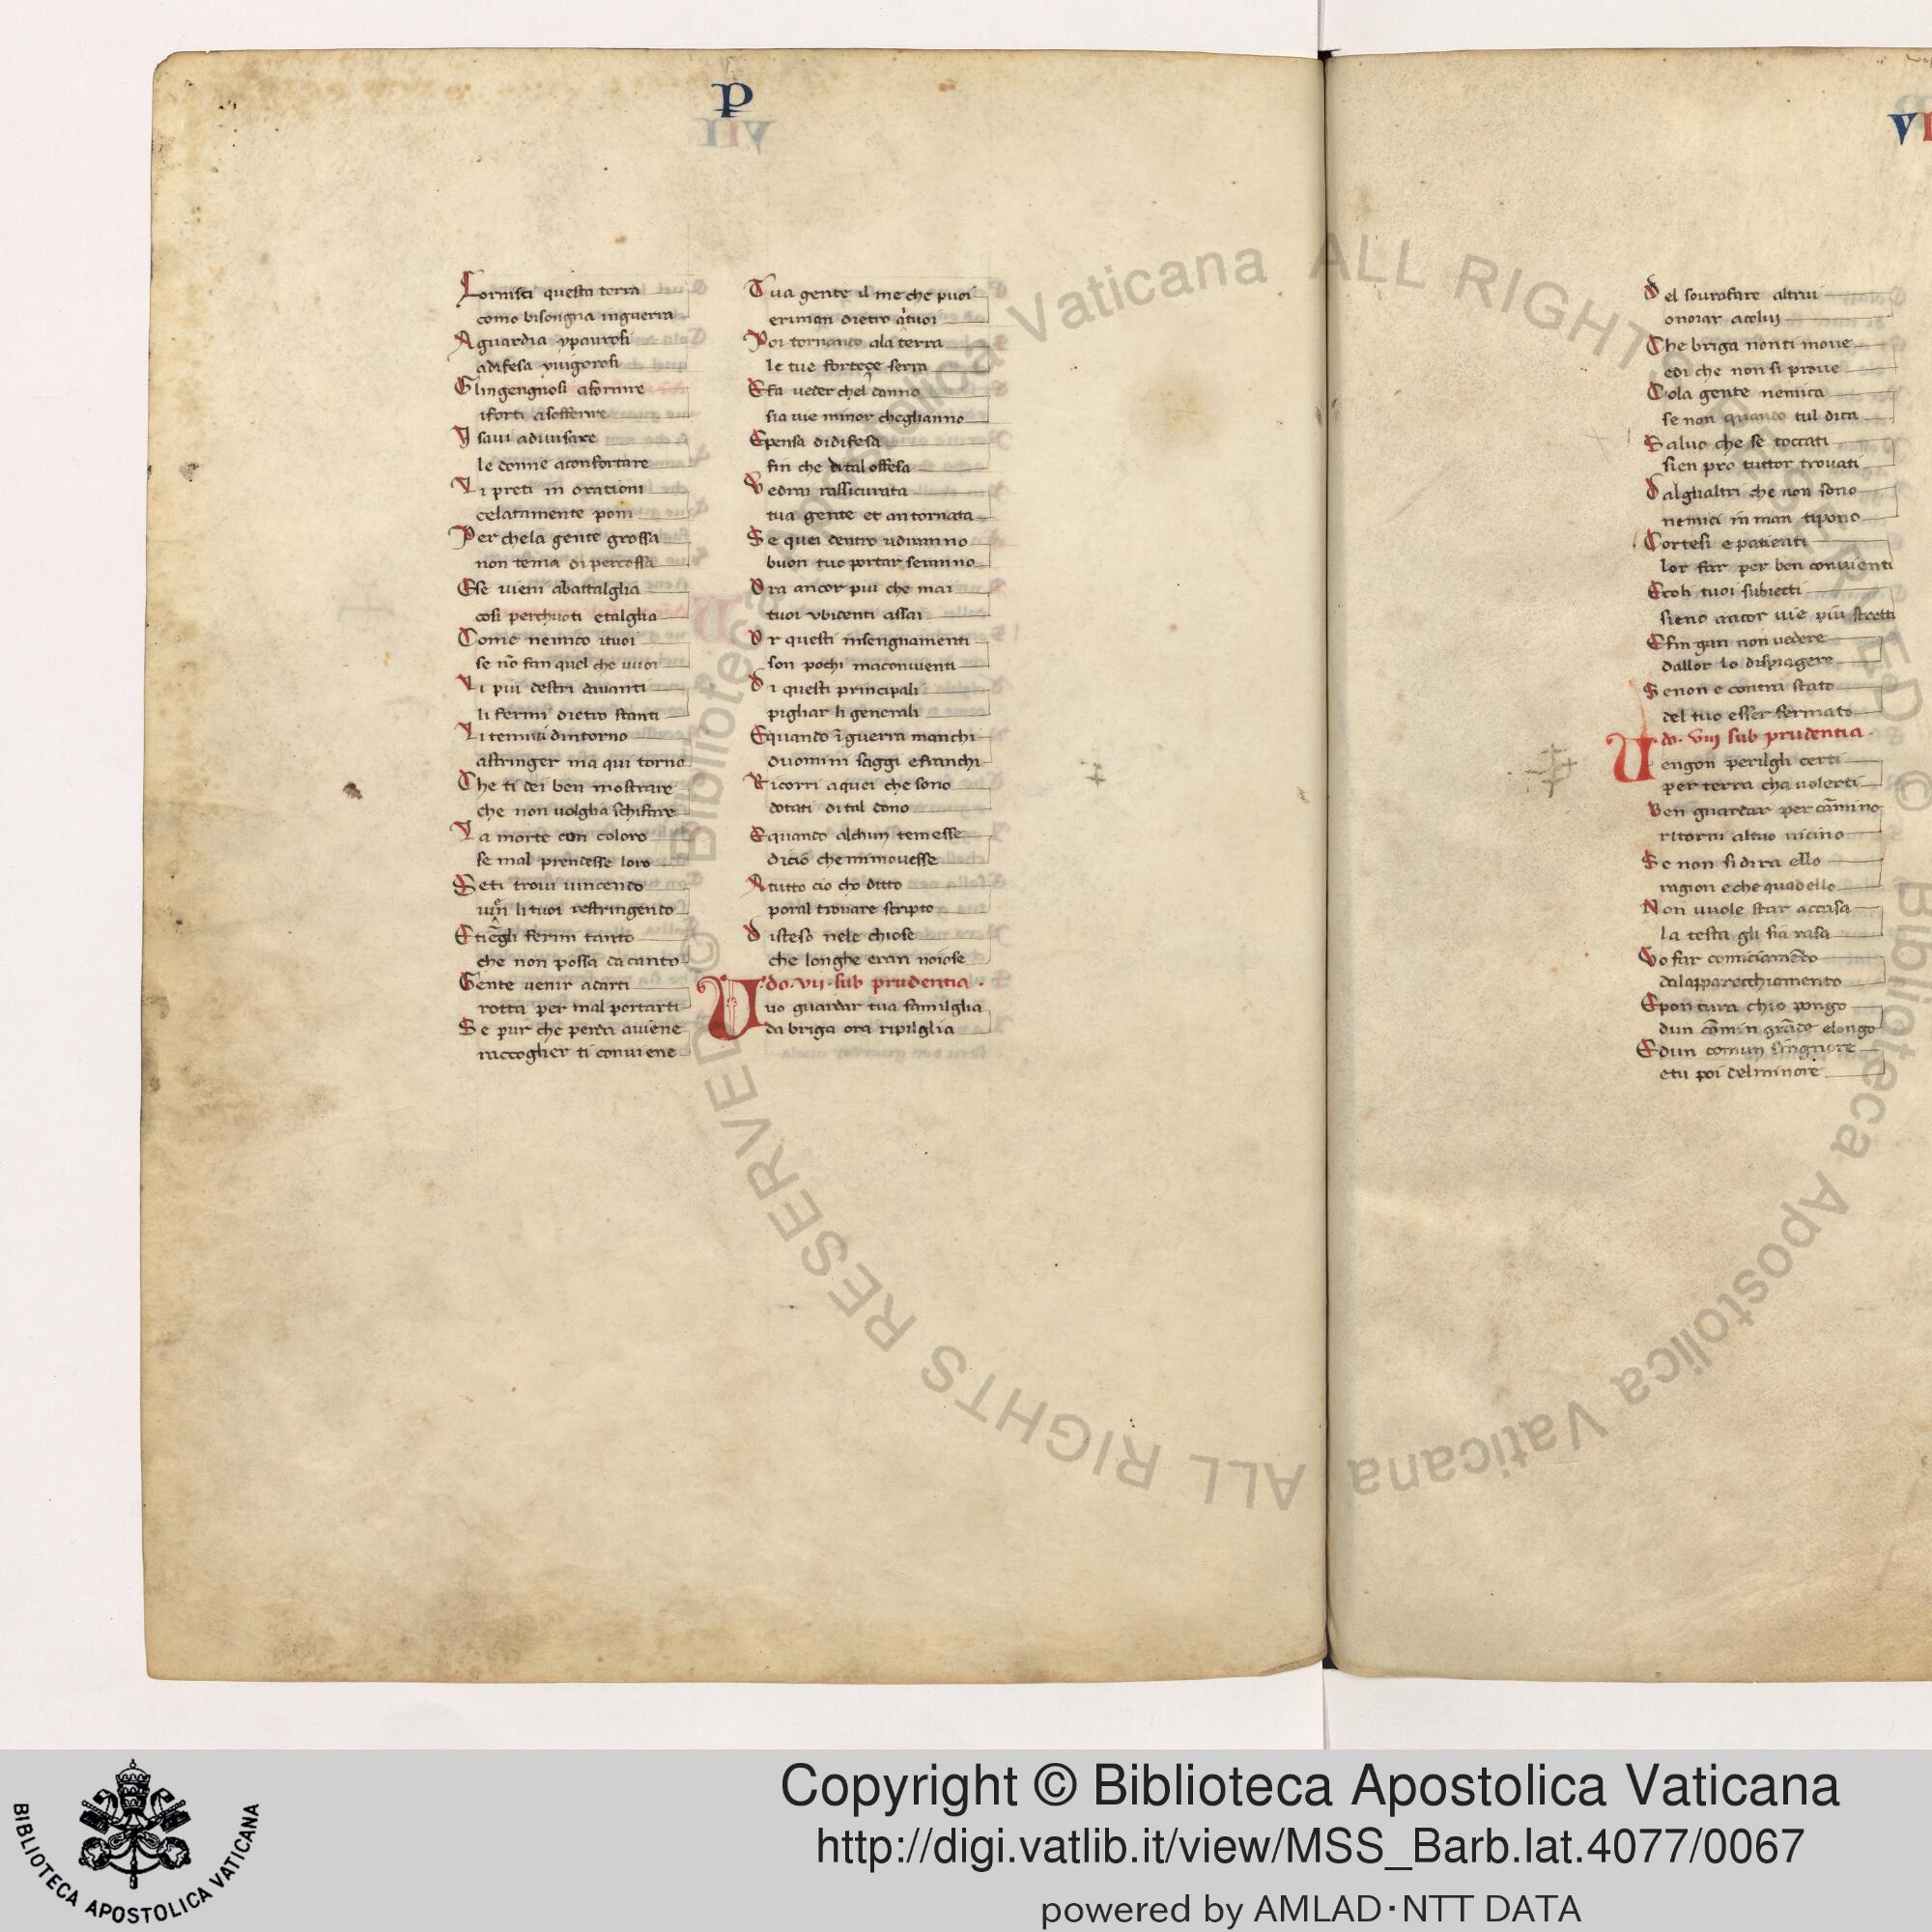 P
Fornisci questa terra
como bisongna inguerra
A guardia ypaurosi
adifesa yuigorosi
Glingengnosi afornire
iforti asofferire
I saui aduisare
le donne aconfortare
Li preti in orationi
celatamente poni
Per chela gente grossa
non tema di percossa
Ese uieni abattalglia
cosi perchuoti etalglia
Come nemico ituoi
se nõ fan quel che uuoi
Li piu destri dauanti
li fermi dietro stanti
Li temidi dintorno
astringer ma qui torno
Che ti dei ben mostrare
che non uolglia schifare
La morte con coloro
se mal prendesse loro
Seti troui uincendo
li tuoi restringendo
Etiegli fermi tanto
che non possa dacanto
Gente uenir adarti
rotta per mal portarti
Se pur che perda auiene
raccoglier ti conuiene
Tua gente il me che puoi
eriman dietro atuoi
Poi tornando ala terra
le tue forteçe serra
Efa ueder chel danno
sia uie minor cheglianno
Epensa didifesa
fin che dital offesa
Vedrai rassicurata
tua gente et antornata
Se quei dentro uduranno
buon tuo portar seranno
Ora ancor piu che mai
tuoi vbidenti assai
Or questi insengnamenti
son pochi maconuienti
Di questi principali
pigliar li generali
Equando ĩguerra manchi
duomini saggi efranchi
Ricorri aquei che sono
dotati dital dono
Equando alchun temesse
dicio chemimouesse
Atutto cio cho ditto
poral trouare scripto
Disteso nele chiose
che longhe eran noiose
do. vii. sub prudentia.
Uuo guardar tua familglia
da briga ora ripilglia
VI
Del sourafare altrui
onorar acolui
Che briga nonti moue
edi che non si proue
Cola gente nemica
se non quando tul dica
Saluo che se toccati
sien pro tuttor trouati
Dalglialtri che non sono
nemici in man tipono
Cortesi e patienti
lor far per ben conuienti
Ecoli tuoi subietti
sieno ancor uie piu stretti
Efin gan non uedere
dallor lo dispiagere
Senon e contra stato
del tuo esser fermato
do. viij sub prudentia.
Uengon perilgli certi
per terra cha uolerti
Ben guardar per cãmino
ritorni altuo uicino
Se non sidira ello
ragion eche quad ello
Non uuole star accusa
la testa gli sia rasa
Vo far cominciamẽto
dalapparecchiamento
Epon cura chio pongo
dun cõmin grãde elongo
Edun comun singnore
etu poi delminore
© Biblioteca Apostolica Vaticana ALL RIGHTS RESERVED
© Biblioteca Apostolica Vaticana ALL RIGHTS RESERVED
BIBLIOTECA APOSTOLICA VATICANA
Copyright © Biblioteca Apostolica Vaticana
http://digi.vatlib.it/view/MSS_Barb.lat.4077/0067
powered by AMLAD·NTT DATA